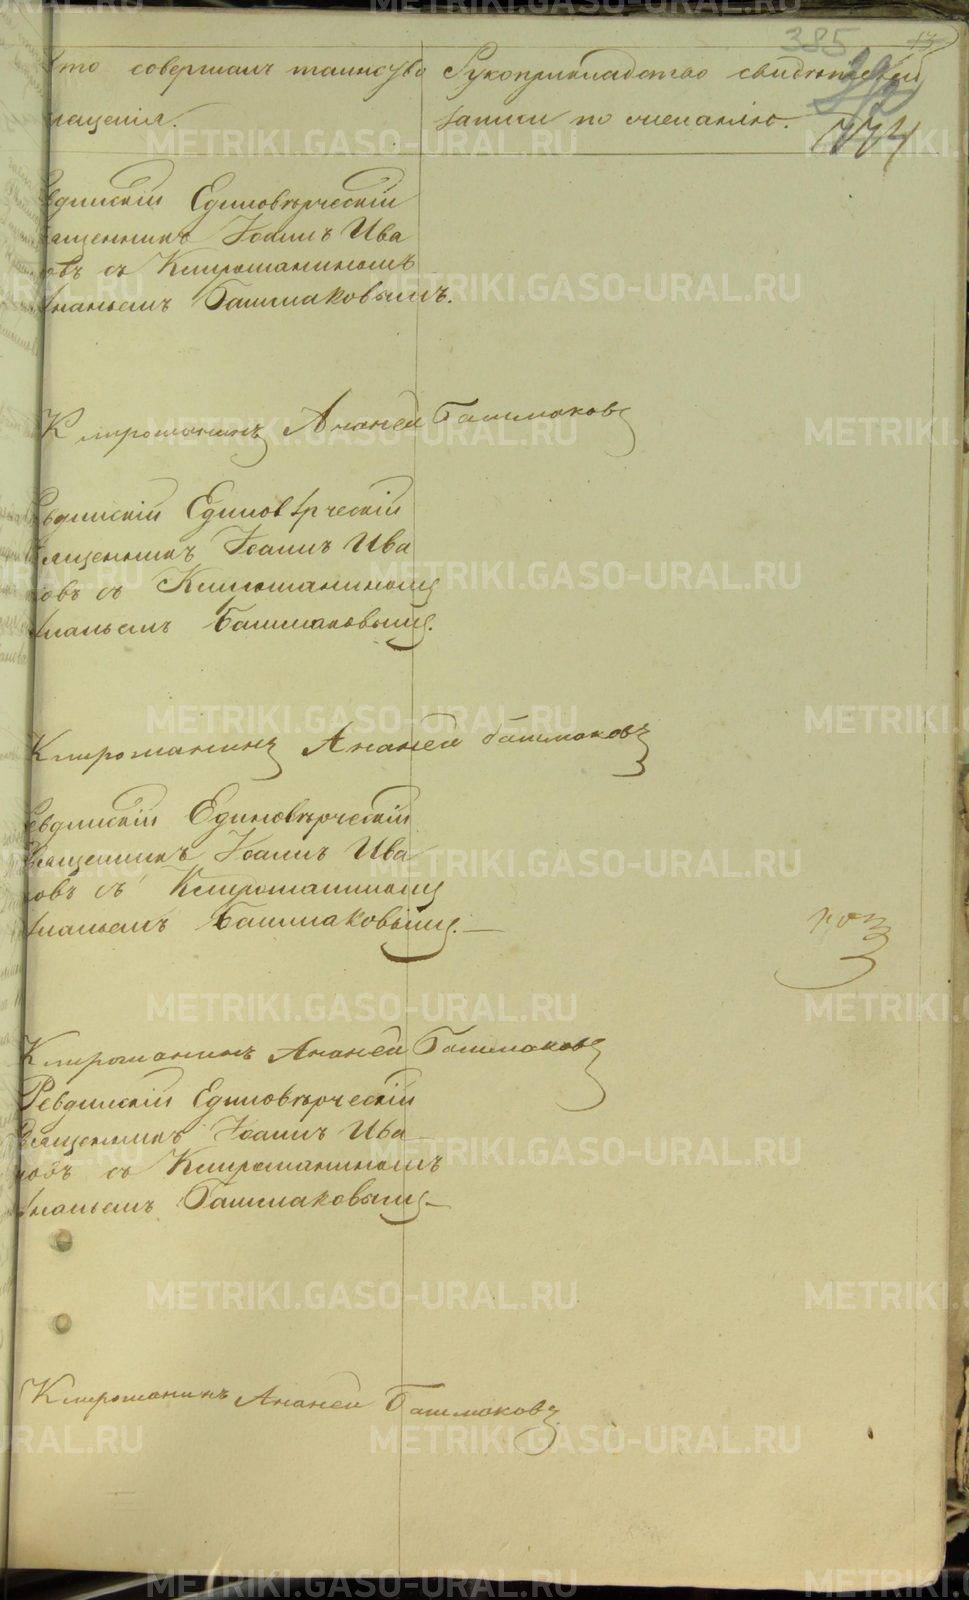 385 13
Кто совершалъ таинство Рукоприкладство свидѣтелей
крещенія. записи по желанію.
774
Ревдинскій Единовѣрческій
Священникъ Іоаннъ Ива
новъ съ Клирошаниномъ
Ананьемъ Башмаковымъ.
Клирошанинъ Ананей Башмаковъ
Ревдинскій Единовѣрческій
Священникъ Іоаннъ Ива
новъ съ Клирошаниномъ
Ананьемъ Башмаковымъ.
Клирошанинъ Ананей башмаковъ
Ревдинскій Единовѣрческій
Священникъ Іоаннъ Ива
новъ съ Клирошаниномъ
Ананьемъ Башмаковымъ.
Клирошанинъ Ананей Башмаковъ
Ревдинскій Единовѣрческій
Священникъ Іоаннъ Ива
новъ съ Клирошаниномъ
Ананьемъ Башмаковымъ
Клирошанинъ Ананей Башмаковъ
METRIKI.GASO-URAL.RU